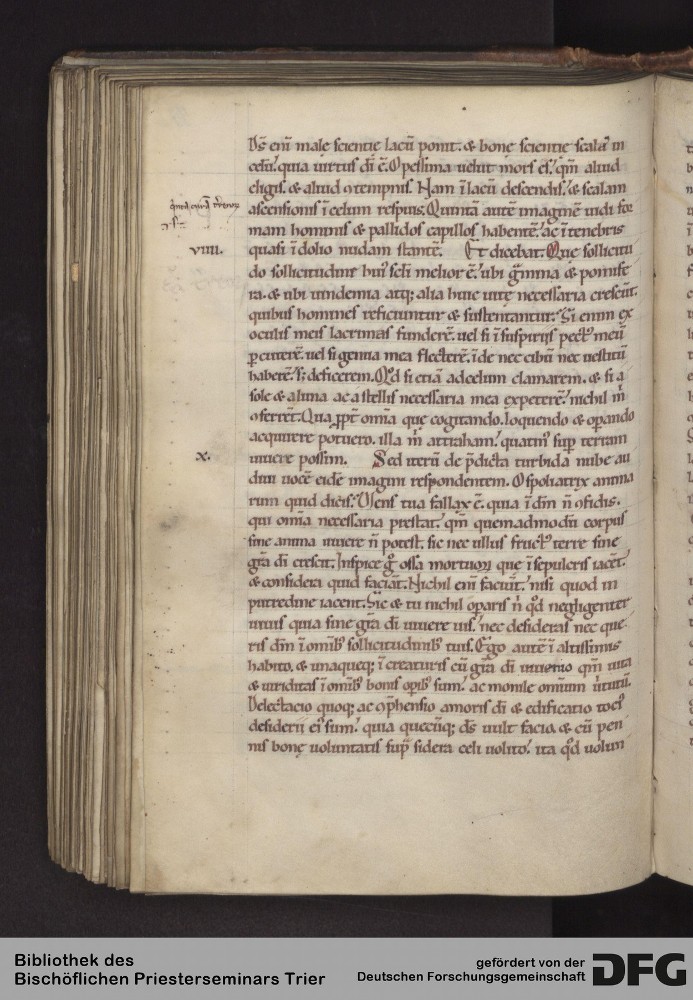 Ds̄ eni male scientie lacū ponit. & bone scientie scalā in
celū. quia uirtus di ē. O pessima uelut mors es. qm̄ aliud
eligis. & aliud ꝯtempnis. Nam ī lacū descendis. & scalam
ascensionis ī celum respuis. Quintā autē imaginē uidi for
mam hominis & pallidos capillos habentē. ac ī tenebris
uiiii.
quasi ī dolio nudam stantē. Et dicebat. Que sollicitu
do sollicitudine hui᷒ scli melior ē. ubi gm̄ina & pomife
ra. & ubi uindemia atq; alia huic uite necessaria crescūt.
quibus homines reficiuntur & sustentantur. Si enim ex
oculis meis lacrimas funderē. uel si ī suspiriis pect᷒ meū
ꝑcuterē. uel si genua mea flecterē. īde nec cibū nec uestitū
haberē. s; deficerem. Qd̄ si etiā ad celum clamarem. & si a
sole & a luna ac a stellis necessaria mea expeterē. nichil m̄
ꝯferrēt. Qua ꝓpt omīa que cogitando. loquendo & oꝑando
acquirere potuero. illa m̄ attraham. quatin᷒ suꝑ terram
x.
uiuere possim. Sed iterū de p̄dicta turbida nube au
diui uocē eidē imagini respondentem. O spoliatrix anima
rum quid dicis. Mens tua fallax ē. quia ī dm̄ n̄ ꝯfidis.
qui omīa necessaria prestat. qm̄ quemadmodū corpus
sine anima uiuere n̄ potest. sic nec ullus fruct᷒ terre sine
gr̄a di crescit. Inspice g° ossa mortuoꝝ que ī sepulcris iacēt.
& considera quid faciāt. Nichil eni faciūt. nisi quod in
putredine iacent. Sic & tu nichil oꝑaris n̄ qd̄ negligenter
uiuis quia sine gr̄a di uiuere uis. nec desideras nec que
ris dm̄ ī omib᷒ sollicitudinib᷒ tuis. Ego autē ī altissimis
habito. & unaqueq; ī creaturis cū gr̄a di uiuenio qm̄ uita
& uiriditas ī omib᷒ bonis oꝑib᷒ sum. ac monile omnium uirtutū.
Delectacio quoq; ac ꝯp̄hensio amoris di & edificatio toci᷒
desiderii ei᷒ sum. quia quecūq; ds̄ uult facio. & cū pen
nis bone uoluntatis suꝑ sidera celi uolito. ita qd̄ uolun
Bibliothek des
Bischöflichen Priesterseminars Trier
gefördert von der
Deutschen Forschungsgemeinschaft
DFG